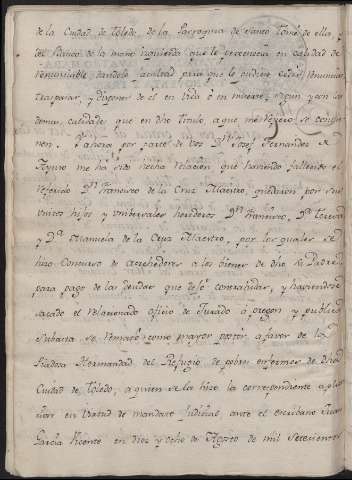 de la Ciudad, de Toledo, de la Parroquia de Santo Tomé de ella, y
del Banco de la mano izquierda que le pertenecia en calidad de
renunciable dandole facultad para que le pudiese ceder, renunciar
traspasar, y disponer de el en vida ó en muerte, segun y con las
demas, calidades que en dho titulo, a que me refiero se contie-
nen. Y ahora por parte de vos Dn Josef Fernandez de
me ha sido hecha relacion que haviendo fallecido el
referido Dn Francisco de la Cruz Maestro, quedaron por sus
unicos hijos y universales herederos Dn Francisco, Da Teresa
y Da Manuela de la Cruz Maestro, por los quales se
hizo Concurso de Acrehedores a los bienes de dho su Padre
para pago de las deudas que dejó contrahidas, y haviendose
sacado el relacionado oficio de Jurado á pregon y publica
subasta se remató como mayor postor á favor de la
Piadosa Hermandad del Refugio de pobres enfermos de dha
Ciudad de Toledo, a quien se la hizo la correspondiente
en virtud de mandato judicial, ante el escribano Juan
Garcia Vicente en diez y ocho de Agosto de mil setecientos